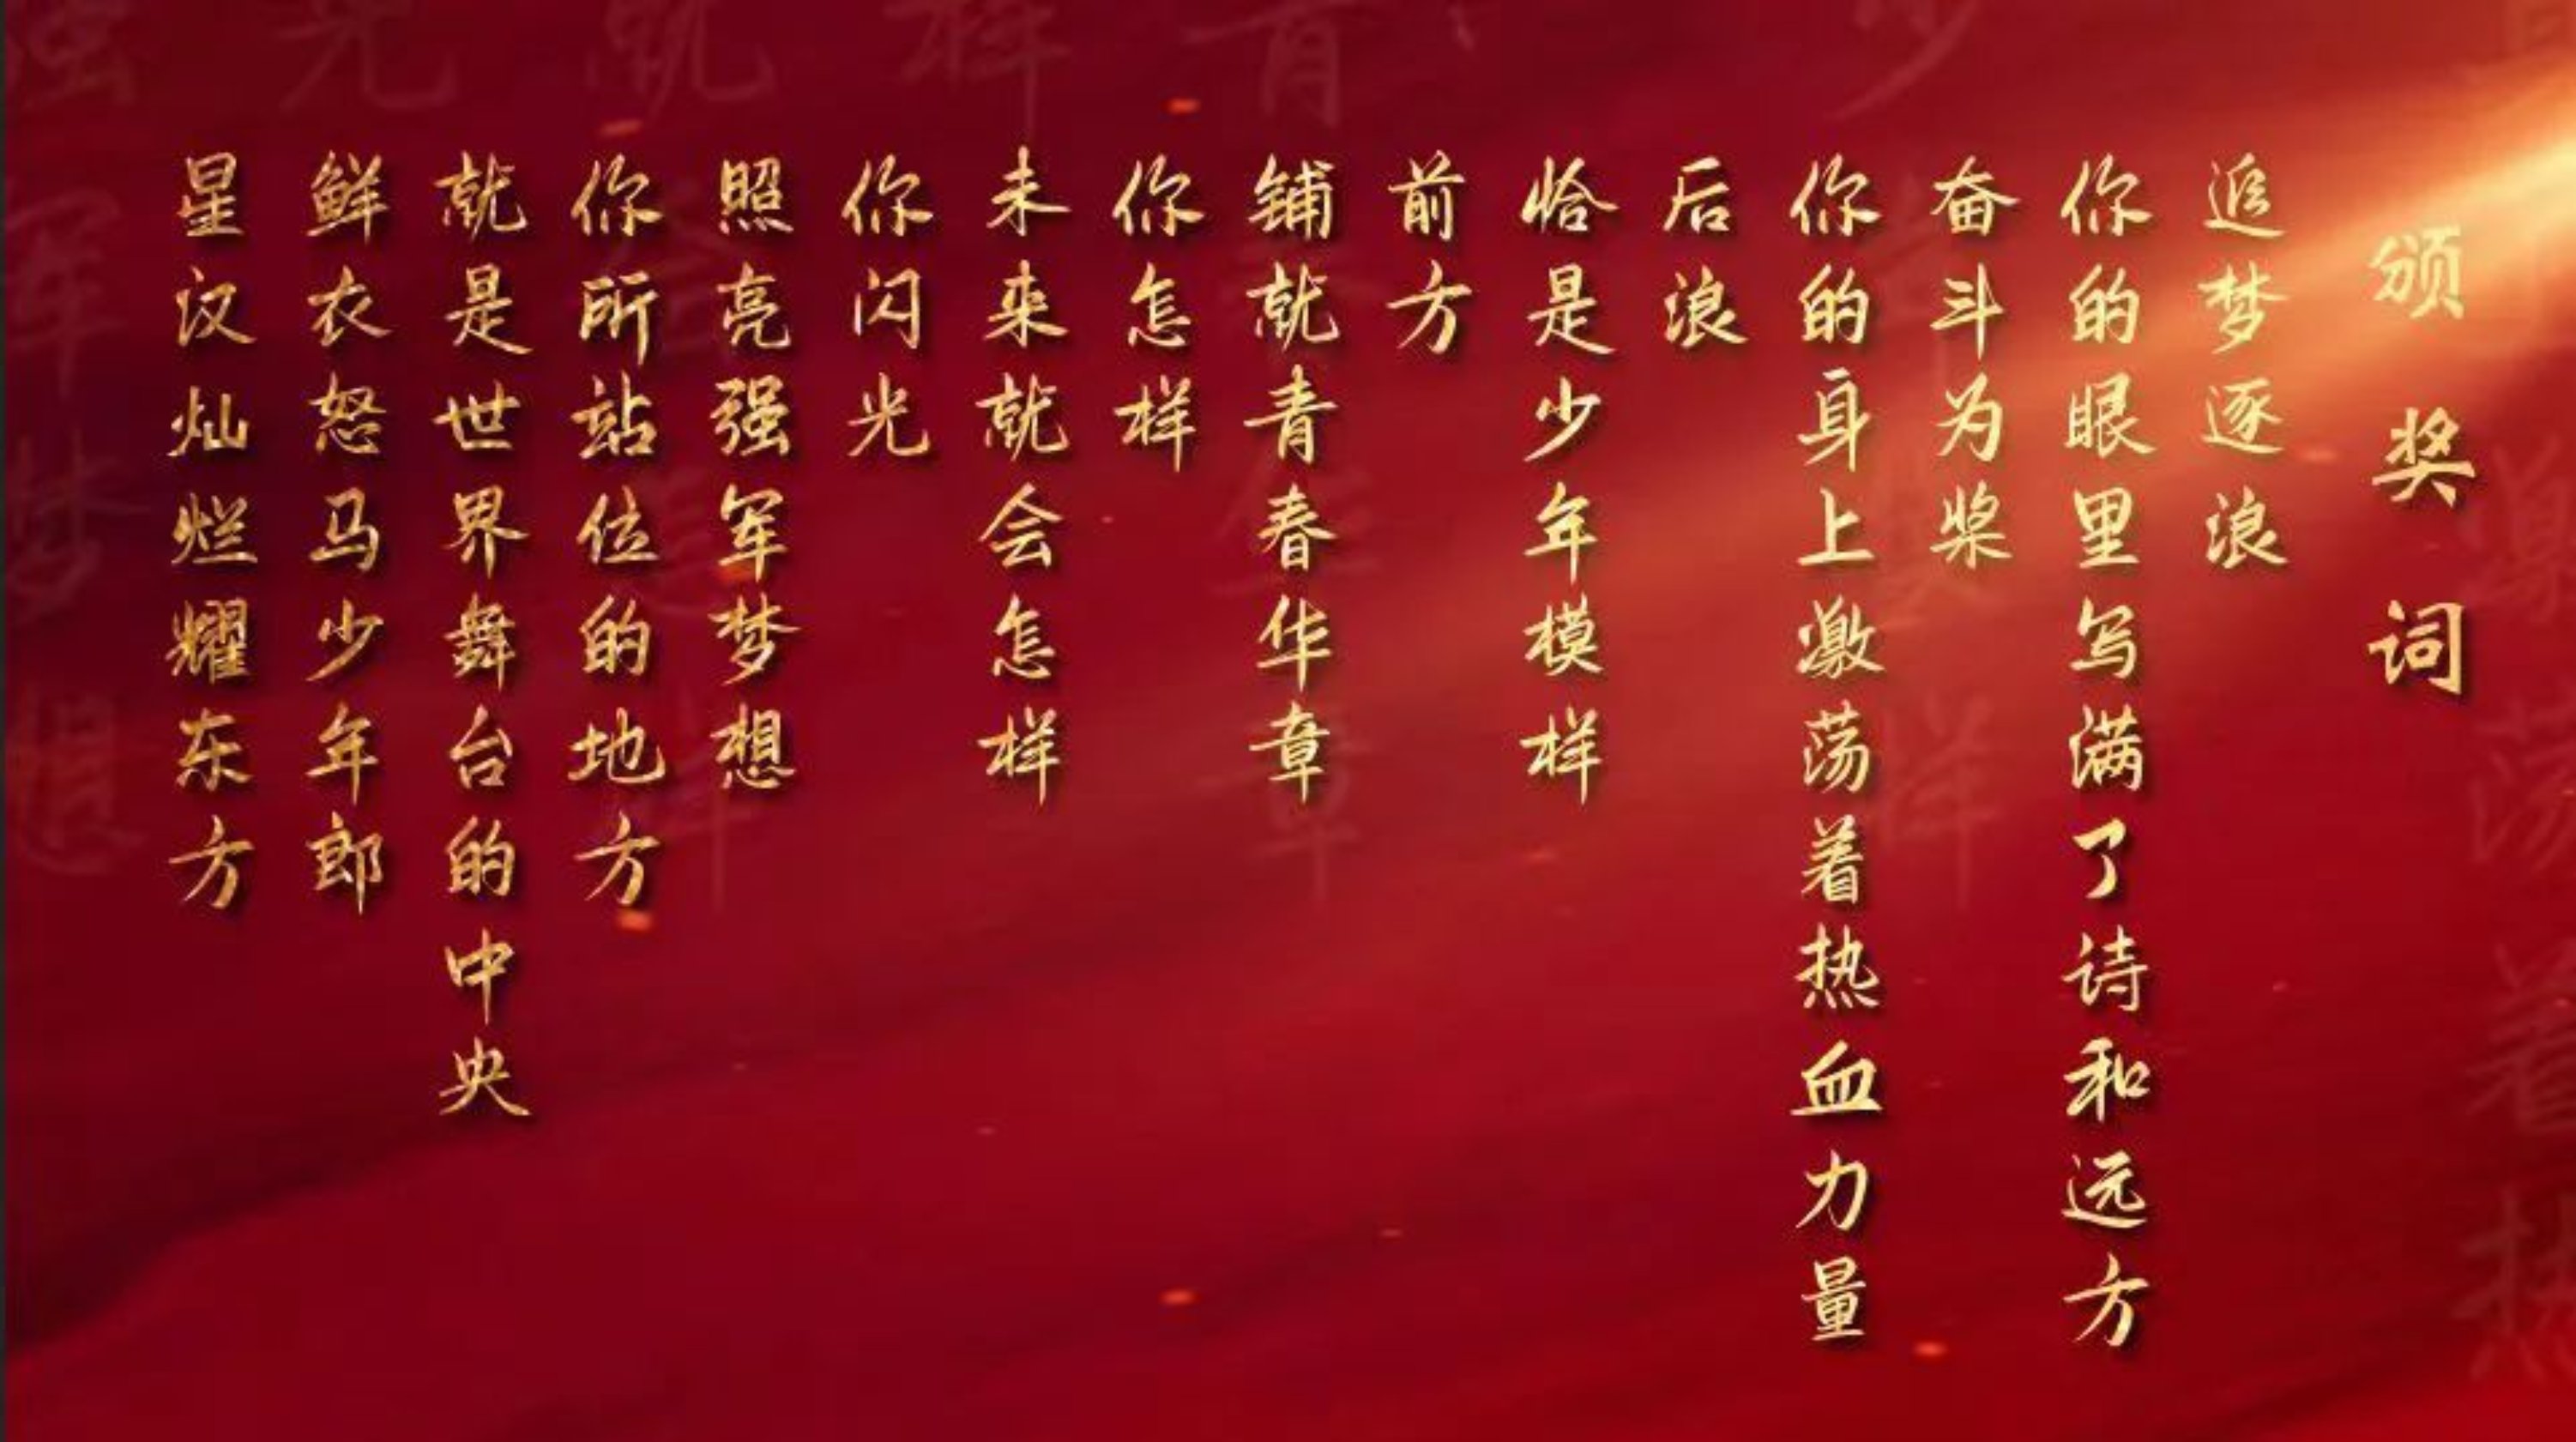 颁奖词
追梦逐浪
你的眼里写满了诗和远方
奋斗为桨
你的身上激荡着热血力量
后浪
恰是少年模样
前方
铺就青春华章
你怎样
未来就会怎样
你闪光
照亮强军梦想
你所站位的地方
就是世界舞台的中央
鲜衣怒马少年郎
星汉灿烂耀东方